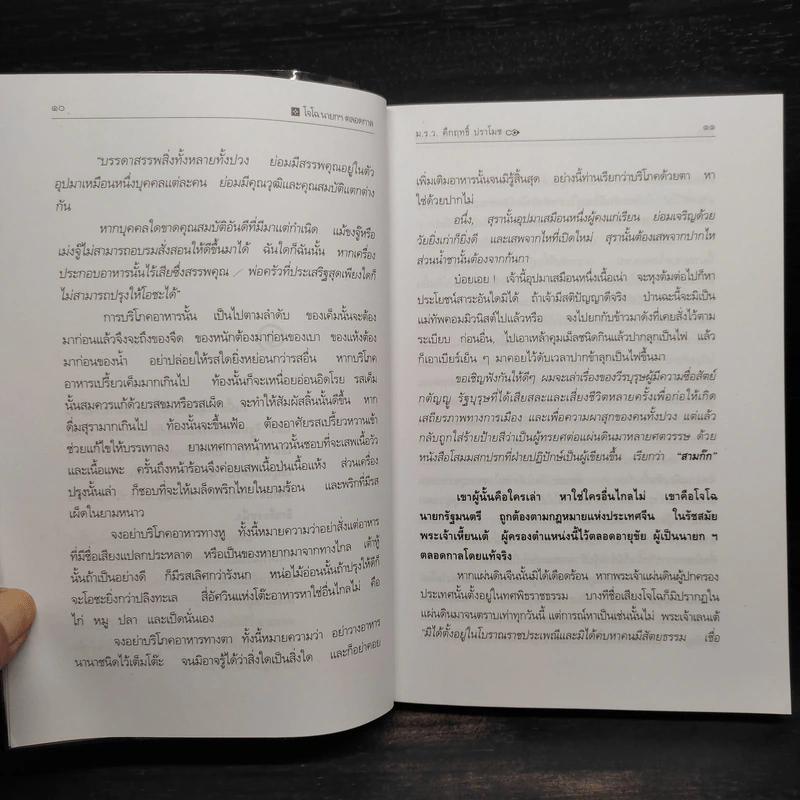 ๑๐
โจโฉ นายกฯ ตลอดกาล
"บรรดาสรรพสิ่งทั้งหลายทั้งปวง ย่อมมีสรรพคุณอยู่ในตัว
อุปมาเหมือนหนึ่งบุคคลแต่ละคน ย่อมมีคุณวุฒิและคุณสมบัติแตกต่าง
กัน
หากบุคคลใดขาดคุณสมบัติอันดีที่มีมาแต่กำเนิด แม้ขงจู๊หรือ
เม่งจู๊ไม่สามารถอบรมสั่งสอนให้ดีขึ้นมาได้ ฉันใดก็ฉันนั้น หากเครื่อง
ประกอบอาหารนั้นไร้เสียซึ่งสรรพคุณ / พ่อครัวที่ประเสริฐสุดเพียงใดก็
ไม่สามารถปรุงให้โอชะได้"
การบริโภคอาหารนั้น เป็นไปตามลำดับ ของเค็มนั้นจะต้อง
มาก่อนแล้วจึงจะถึงของจืด ของหนักต้องมาก่อนของเบา ของแห้งต้อง
มาก่อนของน้ำ อย่าปล่อยให้รสใดยิ่งหย่อนกว่ารสอื่น หากบริโภค
อาหารเปรี้ยวเค็มมากเกินไป ท้องนั้นก็จะเหนื่อยอ่อนอิดโรย รสเค็ม
นั้นสมควรแก้ด้วยรสขมหรือรสเผ็ด จะทำให้สัมผัสลิ้นนั้นดีขึ้น หาก
ดื่มสุรามากเกินไป ท้องนั้นจะขึ้นเฟ้อ ต้องอาศัยรสเปรี้ยวหวานเข้า
ช่วยแก้ไขให้บรรเทาลง ยามเทศกาลหน้าหนาวนั้นชอบที่จะเสพเนื้อวัว
และเนื้อแพะ ครั้นถึงหน้าร้อนจึงค่อยเสพเนื้อปนเนื้อแห้ง ส่วนเครื่อง
ปรุงนั้นเล่า ก็ชอบที่จะให้เมล็ดพริกไทยในยามร้อน และพริกที่มีรส
เผ็ดในยามหนาว
จงอย่าบริโภคอาหารทางหู ทั้งนี้หมายความว่าอย่าสั่งแต่อาหาร
ที่มีชื่อเสียงแปลกประหลาด หรือเป็นของหายากมาจากทางไกล เต้าหู้
นั้นถ้าเป็นอย่างดี ก็มีรสเลิศกว่ารังนก หน่อไม้อ่อนนั้นถ้าปรุงให้ดีก็
จะโอชะยิ่งกว่าปลิงทะเล สี่อัศวินแห่งโต๊ะอาหารหาใช่อื่นไกลไม่ คือ
ไก่ หมู ปลา และเป็ดนั่นเอง
จงอย่าบริโภคอาหารทางตา ทั้งนี้หมายความว่า อย่าวางอาหาร
นานาชนิดไว้เต็มโต๊ะ จนมิอาจรู้ได้ว่าสิ่งใดเป็นสิ่งใด และก็อย่าคอย
ม.ร.ว. คึกฤทธิ์ ปราโมช
๑๑
เพิ่มเติมอาหารนั้นจนมิรู้สิ้นสุด อย่างนี้ท่านเรียกว่าบริโภคด้วยตา หา
ใช่ด้วยปากไม่
อนึ่ง, สุรานั้นอุปมาเสมือนหนึ่งผู้คงแก่เรียน ย่อมเจริญด้วย
วัยยิ่งเก่าก็ยิ่งดี และเสพจากไหที่เปิดใหม่ สุรานั้นต้องเสพจากปากไห
ส่วนน้ำชานั้นต้องจากก้นกา
บ๋อยเอย ! เจ้านี้อุปมาเสมือนหนึ่งเนื้อเน่า จะหุงต้มต่อไปก็หา
ประโยชน์สาระอันใดมิได้ ถ้าเจ้ามีสติปัญญาดีจริง ป่านฉะนี้จะมิเป็น
แม่ทัพคอมมิวนิสต์ไปแล้วหรือ จงไปยกกับข้าวมาดังที่เคยสั่งไว้ตาม
ระเบียบ ก่อนอื่น, ไปเอาเหล้าคุมเม็ลชนิดกินแล้วปากลุกเป็นไฟ แล้ว
ก็เอาเบียร์เย็น ๆ มาคอยไว้ดับเวลาปากข้าลุกเป็นไฟขึ้นมา
ขอเชิญฟังกันให้ดีๆ ผมจะเล่าเรื่องของวีรบุรุษผู้มีความซื่อสัตย์
กตัญญู รัฐบุรุษที่ได้เสียสละและเสี่ยงชีวิตหลายครั้งเพื่อก่อให้เกิด
เสถียรภาพทางการเมือง และเพื่อความผาสุกของคนทั้งปวง แต่แล้ว
กลับถูกใส่ร้ายป้ายสีว่าเป็นผู้ทรยศต่อแผ่นดินมาหลายศตวรรษ ด้วย
หนังสือโสมมสกปรกที่ฝ่ายปฏิปักษ์เป็นผู้เขียนขึ้น เรียกว่า "สามก๊ก"
เขาผู้นั้นคือใครเล่า หาใช่ใครอื่นไกลไม่ เขาคือโจโฉ
นายกรัฐมนตรี ถูกต้องตามกฎหมายแห่งประเทศจีน ในรัชสมัย
พระเจ้าเหี้ยนเต้ ผู้ครองตำแหน่งนี้ไว้ตลอดอายุขัย ผู้เป็นนายก ฯ
ตลอดกาลโดยแท้จริง
หากแผ่นดินจีนนั้นมิได้เดือดร้อน หากพระเจ้าแผ่นดินผู้ปกครอง
ประเทศนั้นตั้งอยู่ในทศพิธราชธรรม บางทีชื่อเสียงโจโฉก็มิปรากฏใน
แผ่นดินมาจนตราบเท่าทุกวันนี้ แต่การณ์หาเป็นเช่นนั้นไม่ พระเจ้าเลนเต้
"มิได้ตั้งอยู่ในโบราณราชประเพณีและมิได้คบหาคนมีสัตยธรรม เชื่อ